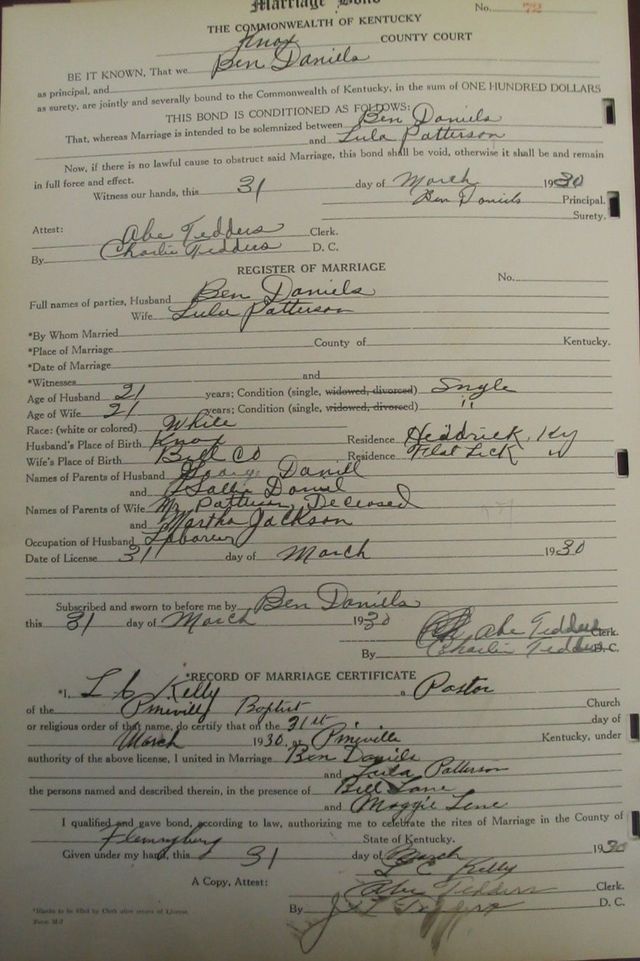 Marriage Bond
No. 72
THE COMMONWEALTH OF KENTUCKY
Knox COUNTY COURT
BE IT KNOWN, That we Ben Daniels
as principal, and
as surety, are jointly and severally bound to the Commonwealth of Kentucky, in the sum of ONE HUNDRED DOLLARS
THIS BOND IS CONDITIONED AS FOLLOWS:
That, whereas Marriage is intended to be solemnized between Ben Daniels
and Lula Patterson
Now, if there is no lawful cause to obstruct said Marriage, this bond shall be void, otherwise it shall be and remain
in full force and effect.
Witness our hands, this 31 day of March 1930
Ben Daniels Principal.
Surety.
Attest: Abe Tedders Clerk.
By Charlie Tedders D. C.
REGISTER OF MARRIAGE
No.
Full names of parties, Husband Ben Daniels
Wife Lula Patterson
*By Whom Married
*Place of Marriage County of Kentucky.
*Date of Marriage
*Witnesses and
Age of Husband 21 years; Condition (single, widowed, divorced) Single
Age of Wife 21 years; Condition (single, widowed, divorced) "
Race: (white or colored) White
Husband's Place of Birth Knox Residence Heddrick, Ky
Wife's Place of Birth Bell Co Residence Flat Lick "
Names of Parents of Husband Daniel
and Sallie Daniel
Names of Parents of Wife Mr Patterson, Deceased
and Martha Jackson
Occupation of Husband Laborer
Date of License 31 day of March 1930
Subscribed and sworn to before me by Ben Daniels
this 31 day of March 1930
Abe Tedders Clerk.
By Charlie Tedders D. C.
*RECORD OF MARRIAGE CERTIFICATE
*I, L C Kelly a Pastor
of the Pineville Baptist Church
or religious order of that name, do certify that on the 31st day of
March 1930, at Pineville Kentucky, under
authority of the above license, I united in Marriage Ben Daniels
and Lula Patterson
the persons named and described therein, in the presence of Bill Lane
and Maggie Lane
I qualified and gave bond, according to law, authorizing me to celebrate the rites of Marriage in the County of
State of Kentucky.
Given under my hand, this 31 day of March 1930
L C Kelly
A Copy, Attest: Abe Tedders Clerk.
By Tedders D. C.
*Blanks to be filled by Clerk after return of License.